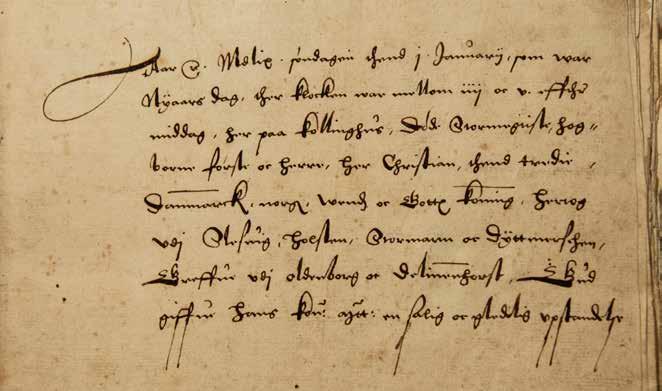 Aar etc. Mdlix. søndagen thend 1 Januarij, som war
Nyaars dag, ther klocken war mellom iiii oc v. effther
middag, her paa Kollinghus, døde Stormegtiste, høg=
borne første oc herre, her Christian, thend tredie,
Danmarck, norg, wend oc Gott koning, hertog
vdj Slesuig, Holsten, Stormarn oc Dyttmerschen,
Greffue vdj oldenborg oc Delmenhorst, Gud
giffue hans kon: Matt: en salig oc gledelig vpstandelse